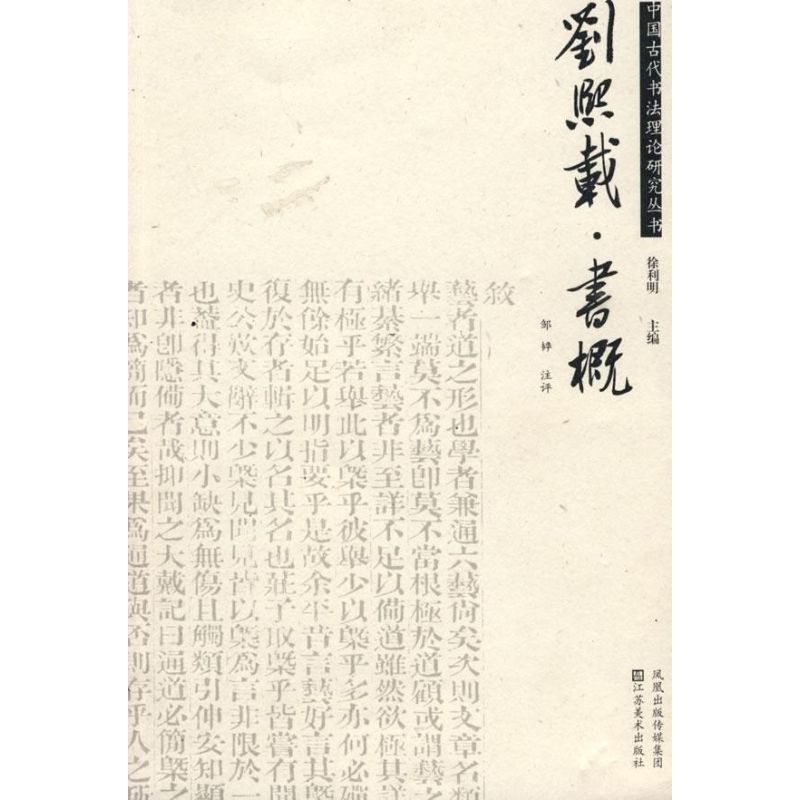 中国古代书法理论研究丛书
徐利明 主编
劉熙載·書概
邹 婵 注评
敘
藝者道之形也學者兼通六藝尚矣次則文章名類
舉一端莫不為藝卽莫不當根極於道顧或謂藝之
緒綦繁言藝者非至詳不足以備道雖然欲極其詳
有極乎若舉此以槩乎彼舉少以槩乎多亦何必
無餘始足以明指要乎是故余平昔言藝好言其槩
復於存者輯之以名其名也莊子取槩乎皆嘗有聞
史公歎文辭不少槩見聞見皆以槩為言非限於一
也蓋得其大意則小缺為無傷且觸類引伸安知顯
者非卽隱備者哉抑聞之大戴記曰通道必簡槩之
者知為簡而已矣至果為通道與否則存乎人之
凤凰出版传媒集团
江苏美术出版社